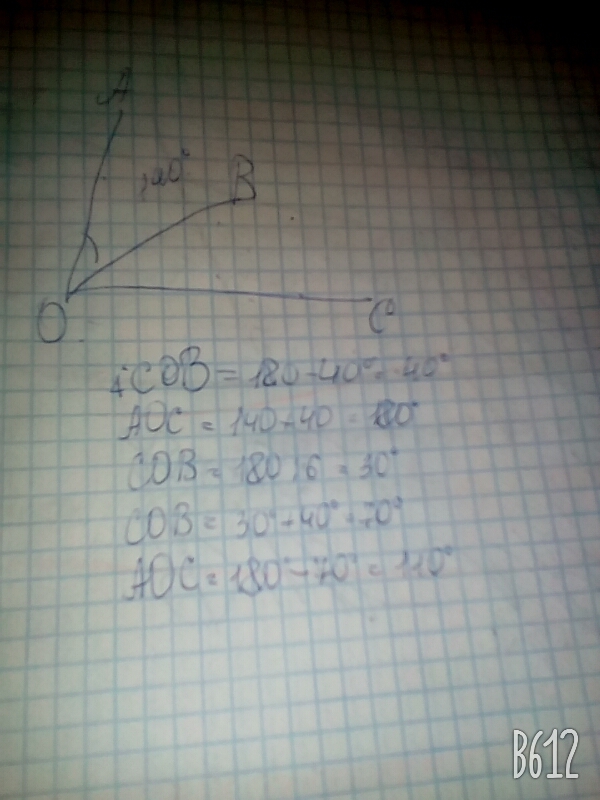 A
140°
B
O
C
∠COB = 180-40°=40°
AOC = 140+40=180°
COB = 180:6=30°
COB = 30°+40°=70°
AOC = 180°-70°=110°
B612